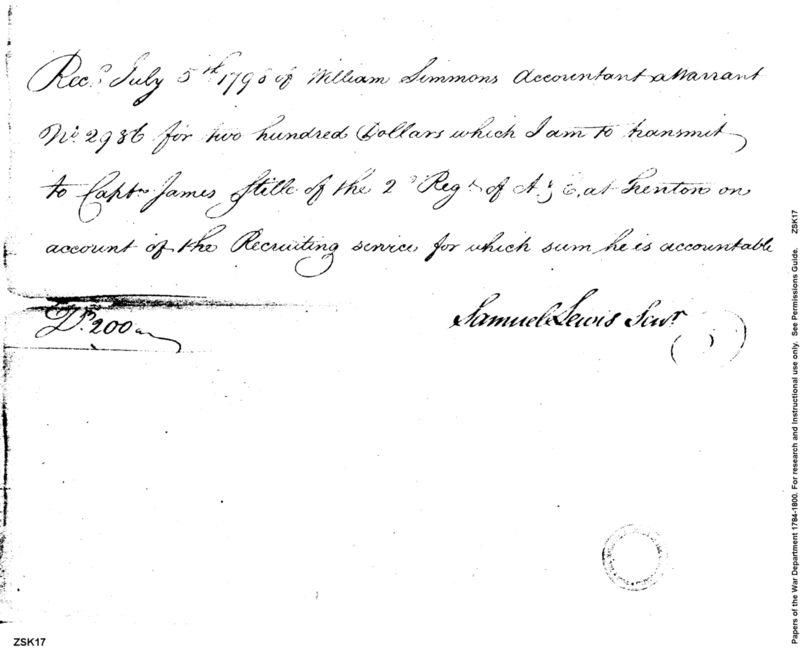 Recd. July 5th 1798 of William Simmons Accountant a Warrant
No. 2936 for two hundred Dollars which I am to transmit
to Captn James Stille of the 2d Regt. of A & E, at Trenton on
account of the Recruiting service for which sum he is accountable
Ds. 200
Samuel Lewis Senr
Papers of the War Department 1784-1800. For research and Instructional use only. See Permissions Guide. ZSK17
ZSK17